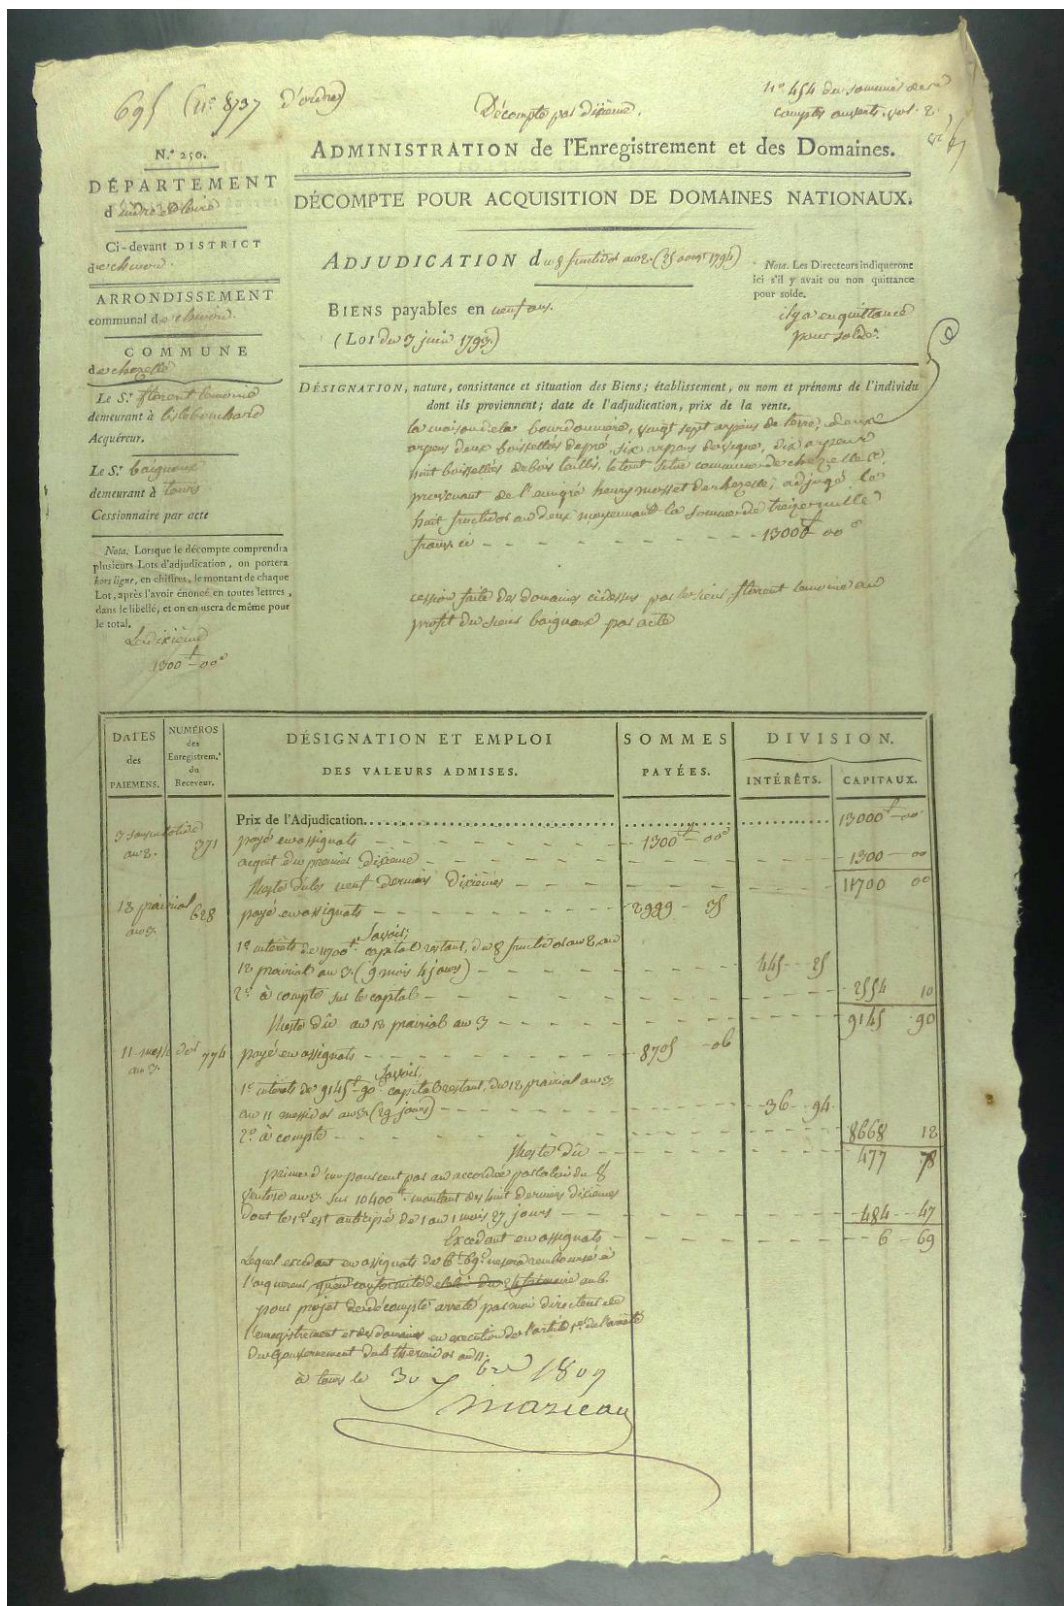 695 (n.o 8737 d'ordre)
Décompte par dixieme.
n.o 454 du sommier des
comptes ouverts, vol. 2.
N.o 250.
ADMINISTRATION de l'Enregistrement et des Domaines.
DÉCOMPTE POUR ACQUISITION DE DOMAINES NATIONAUX.
DÉPARTEMENT
d'indre et loire
Ci-devant DISTRICT
de chinon.
ARRONDISSEMENT
communal de chinon.
COMMUNE
de chezelle
Le S.r florent lemoine
demeurant à l'islebouchard
Acquéreur.
Le S.r baignoux
demeurant à tours
Cessionnaire par acte
Nota. Lorsque le décompte comprendra
plusieurs Lots d'adjudication, on portera
hors ligne, en chiffres, le montant de chaque
Lot, après l'avoir énoncé en toutes lettres,
dans le libellé, et on en usera de même pour
le total.
Le dixième
1300 - 00
ADJUDICATION du 8 fructidor an 2. (25 aoust 1794)
BIENS payables en neuf ans.
(LOI du 3 juin 1793.)
Nota. Les Directeurs indiqueront
ici s'il y avait ou non quittance
pour solde.
il y a eu quittance
pour solde.
DÉSIGNATION, nature, consistance et situation des Biens; établissement, ou nom et prénoms de l'individu
dont ils proviennent; date de l'adjudication, prix de la vente.
la maison de la bourdonniere, vingt sept arpens de terre, deux
arpens deux boisselées de pré, six arpens de vigne, dix arpens
huit boisselées de bois taillis, le tout situé commune de chezelle &
provenant de l'emigré henry mosset de chezelle, adjugé le
huit fructidor an deux moyennant la somme de treize mille
francs ci - - - 13000 00
cession faite des domaines cidessus par le sieur florent lemoine au
profit du sieur baignoux par acte
DATES
des
PAIEMENS.
NUMÉROS
des
Enregistrem.s
du
Receveur.
DÉSIGNATION ET EMPLOI
DES VALEURS ADMISES.
SOMMES
PAYÉES.
DIVISION.
INTÉRÊTS. CAPITAUX.
Prix de l'Adjudication.......... 13000 - 00
3 sansculotide an 2. 371 payé en assignats - - - 1300 - 00
acquit du premier dixieme - - - 1300 - 00
Reste dû les neuf derniers dixièmes - - - 11700 00
12 prairial an 3. 628 payé en assignats - - - 2999 - 35
Savoir;
1.o intérêts de 11700 capital restant, du 8 fructidor an 2, au
12 prairial an 3. (9 mois 4 jours) - - - 445 - 25
2.o à compte sur le capital - - - 2554 10
Reste dû au 12 prairial an 3 - - - 9145 90
11 messidor an 3. 774 payé en assignats - - - 8705 - 06
Savoir;
1.o intérêts de 9145 - 90 capital restant, du 12 prairial an 3
au 11 messidor an 3. (29 jours) - - - 36 94
2.o à compte - - - 8668 12
Reste dû - - - 477 78
prime d'un pour cent par an accordée par la loi du 8
ventose an 3. sur 10400 montant des huit derniers dixiemes
dont le 1.er est anticipé de 1 an 1 mois 27 jours - - - 484 - 47
Excédant en assignats - - - 6 - 69
Lequel excédant en assignats de 6 69 ne sera remboursé à
l'acquereur, qu'en conformité de la loi du 24 frimaire an 6.
pour projet de décompte arrêté par moi directeur de
l'enregistrement et des domaines en execution de l'article 1.er de l'arrêté
du Gouvernement du 4 thermidor an 11.
à tours le 30 1809